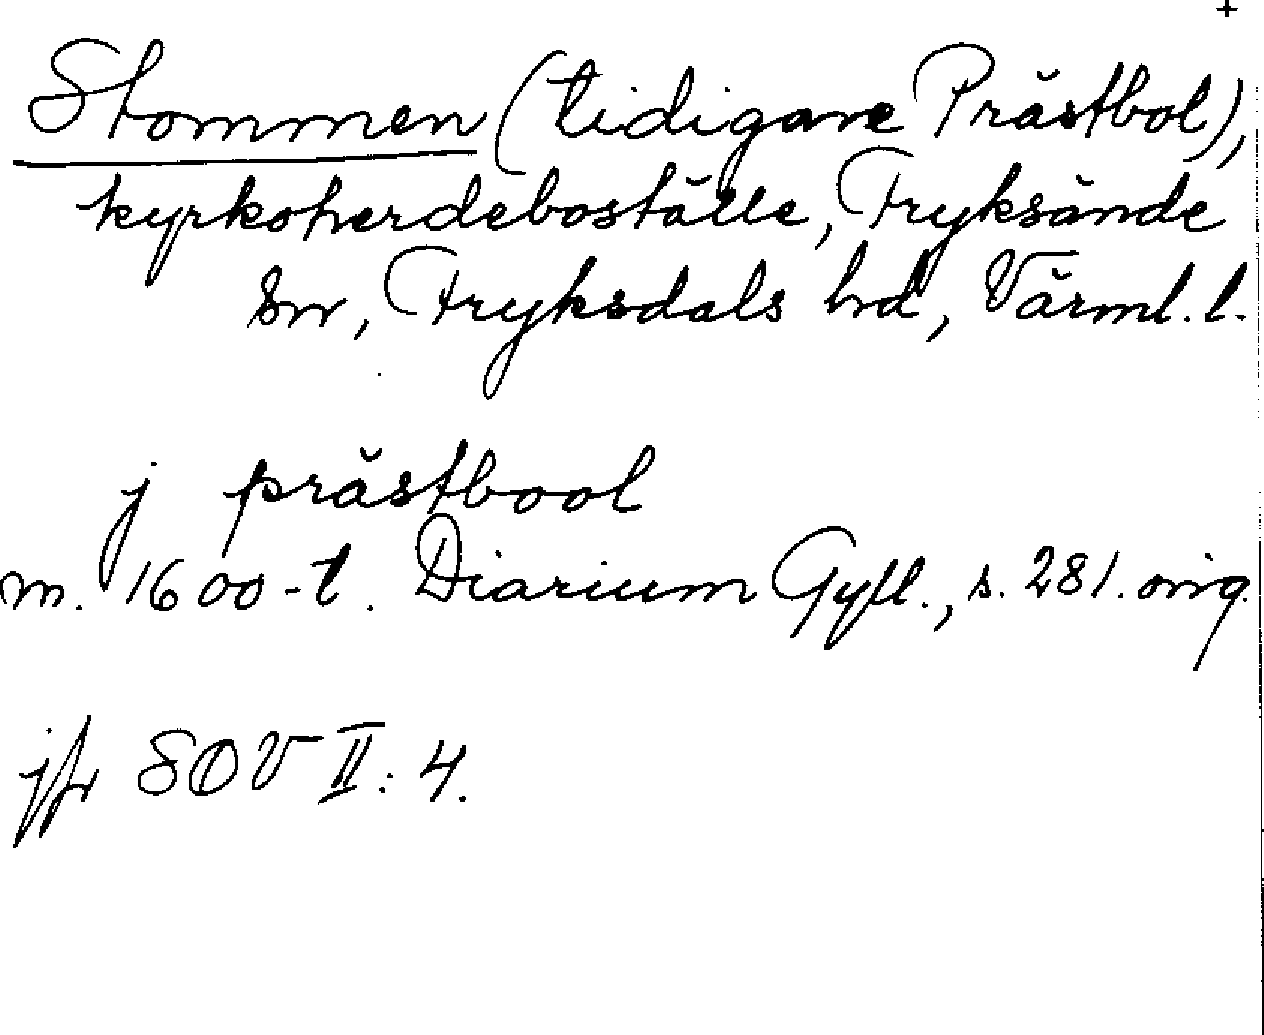 +
Stommen (tidigare Prästbol),
kyrkoherdeboställe, Fryksände
sn, Fryksdals hd, Värml. l.
j prästbool
m. 1600-t. Diarium Gyll., s. 281. orig.
jfr SOV II: 4.